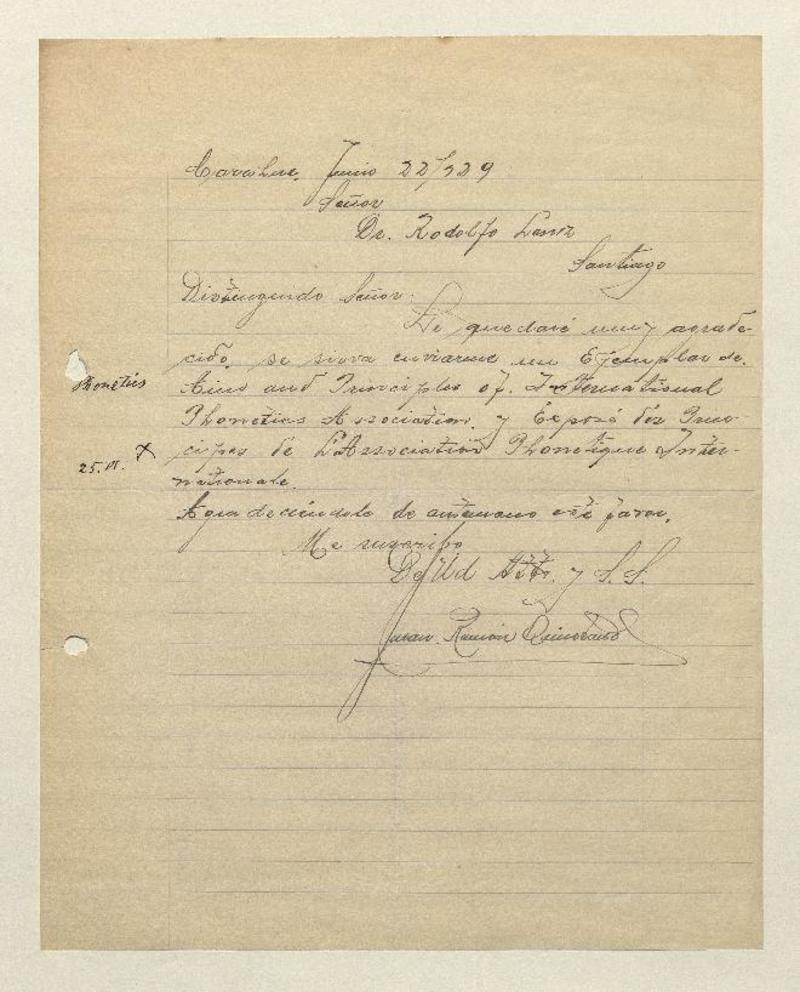 Carahue, Junio 22/929
Señor
Dr. Rodolfo Lenz
Santiago
Distinguido Señor:
Le quedaré muy agrade-
cido, se sirva enviarme un Ejemplar de.
Aims and Principles of. International
Phonetics Association. y Exposé des Prin-
cipes de L'Association Phonetique Inter-
nationale.
Agradeciéndole de antemano este favor,
Me suscribo
De Ud Atto. y S.S.
Juan Ramón
Phonetics
25.VI. X